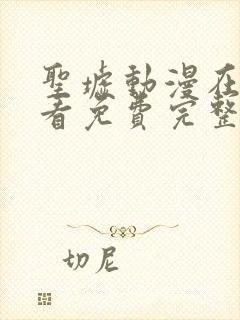 聖墟動漫在
看免費完整
切尼